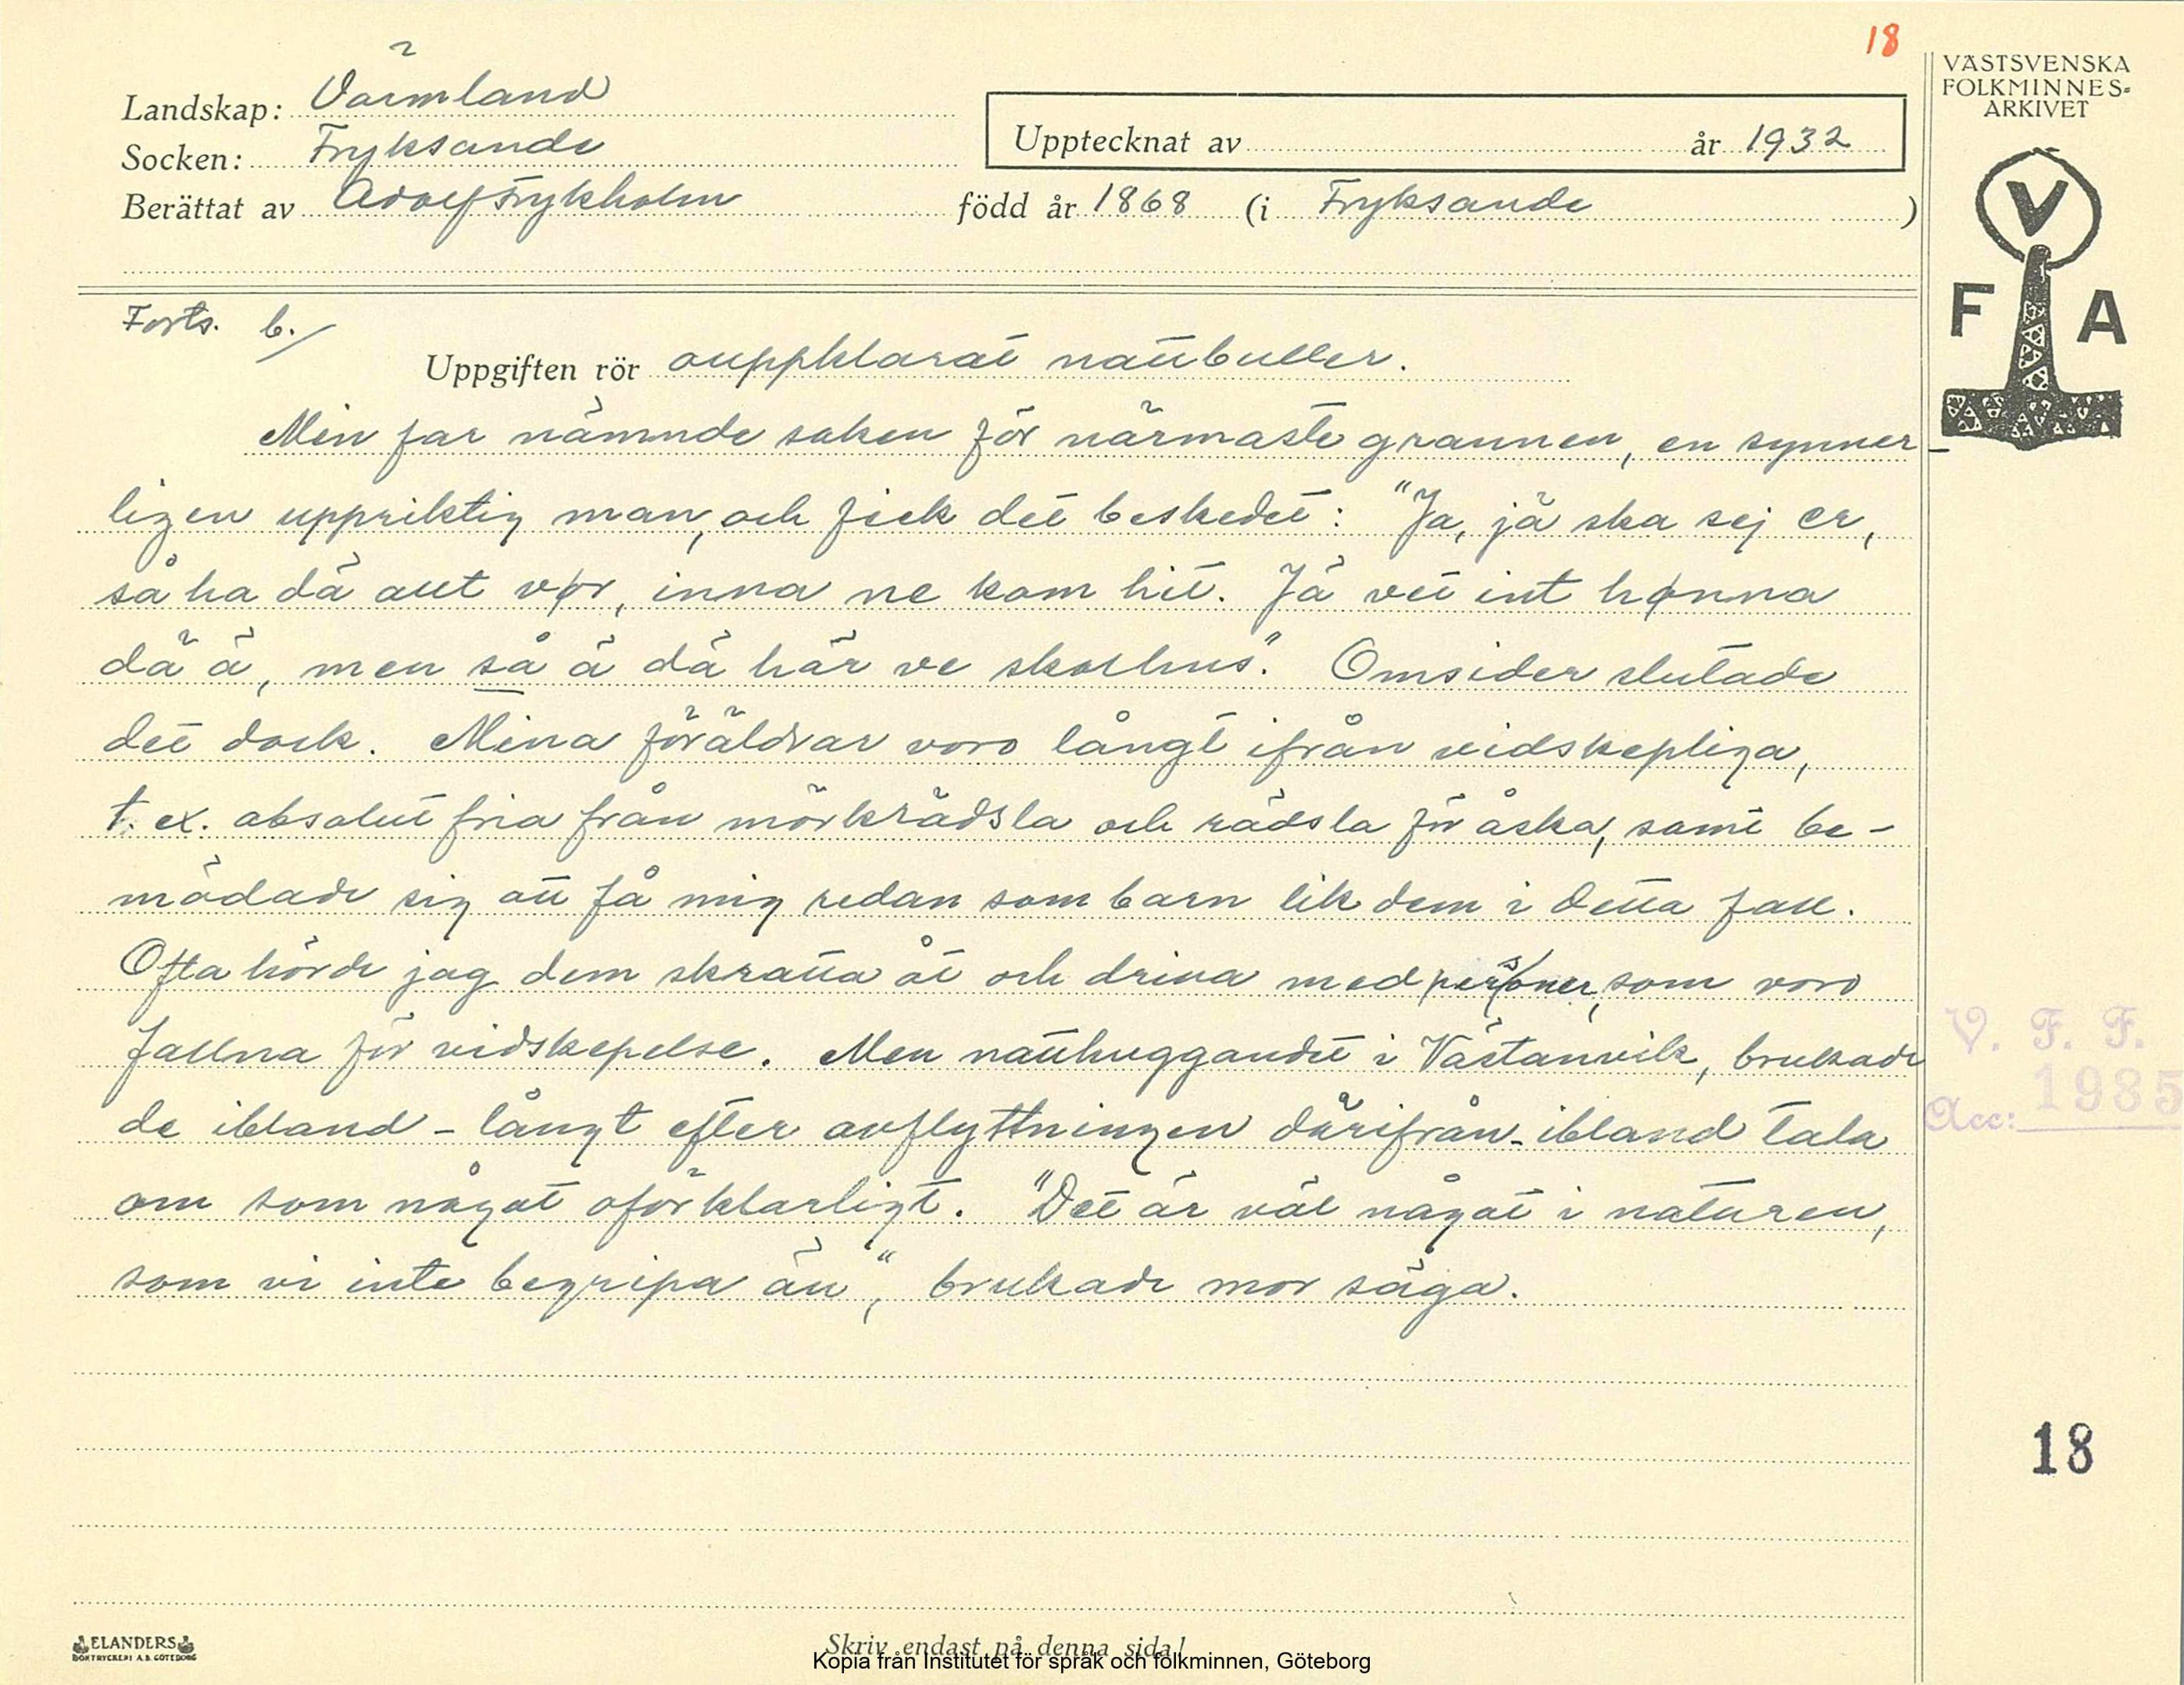 18
VÄSTSVENSKA
FOLKMINNES-
ARKIVET
Landskap: Värmland
Socken: Fryksande
Upptecknat av år 1932
Berättat av Adolf Frykholm född år 1868 (i Fryksande )
V
F A
Forts. 6./
Uppgiften rör ouppklarat nattbuller.
Min far nämnde saken för närmaste grannen, en synner-
ligen uppriktig man, och fick det beskedet: "Ja, jä ska sej er,
så ha dä allt vør, inna ne kom hit. Jä vet int hønna
dä ä, men så ä dä här ve skothus". Omsider slutade
det dock. Mina föräldrar voro långt ifrån vidskepliga,
t. ex. absolut fria från mörkrädsla och rädsla för åska, samt be-
mödade sig att få mig redan som barn lik dem i detta fall.
Ofta hörde jag dem skratta åt och driva med personer, som voro
fallna för vidskepelse. Men natthuggandet i Västanvik, brukade
de ibland - långt efter avflyttningen därifrån - ibland tala
om som något oförklarligt. "Det är väl något i naturen,
som vi inte begripa än", brukade mor säga.
V. F. F.
Acc: 1985
18
ELANDERS
BOKTRYCKERI A.B. GÖTEBORG
Skriv endast på denna sida!
Kopia från Institutet för språk och folkminnen, Göteborg